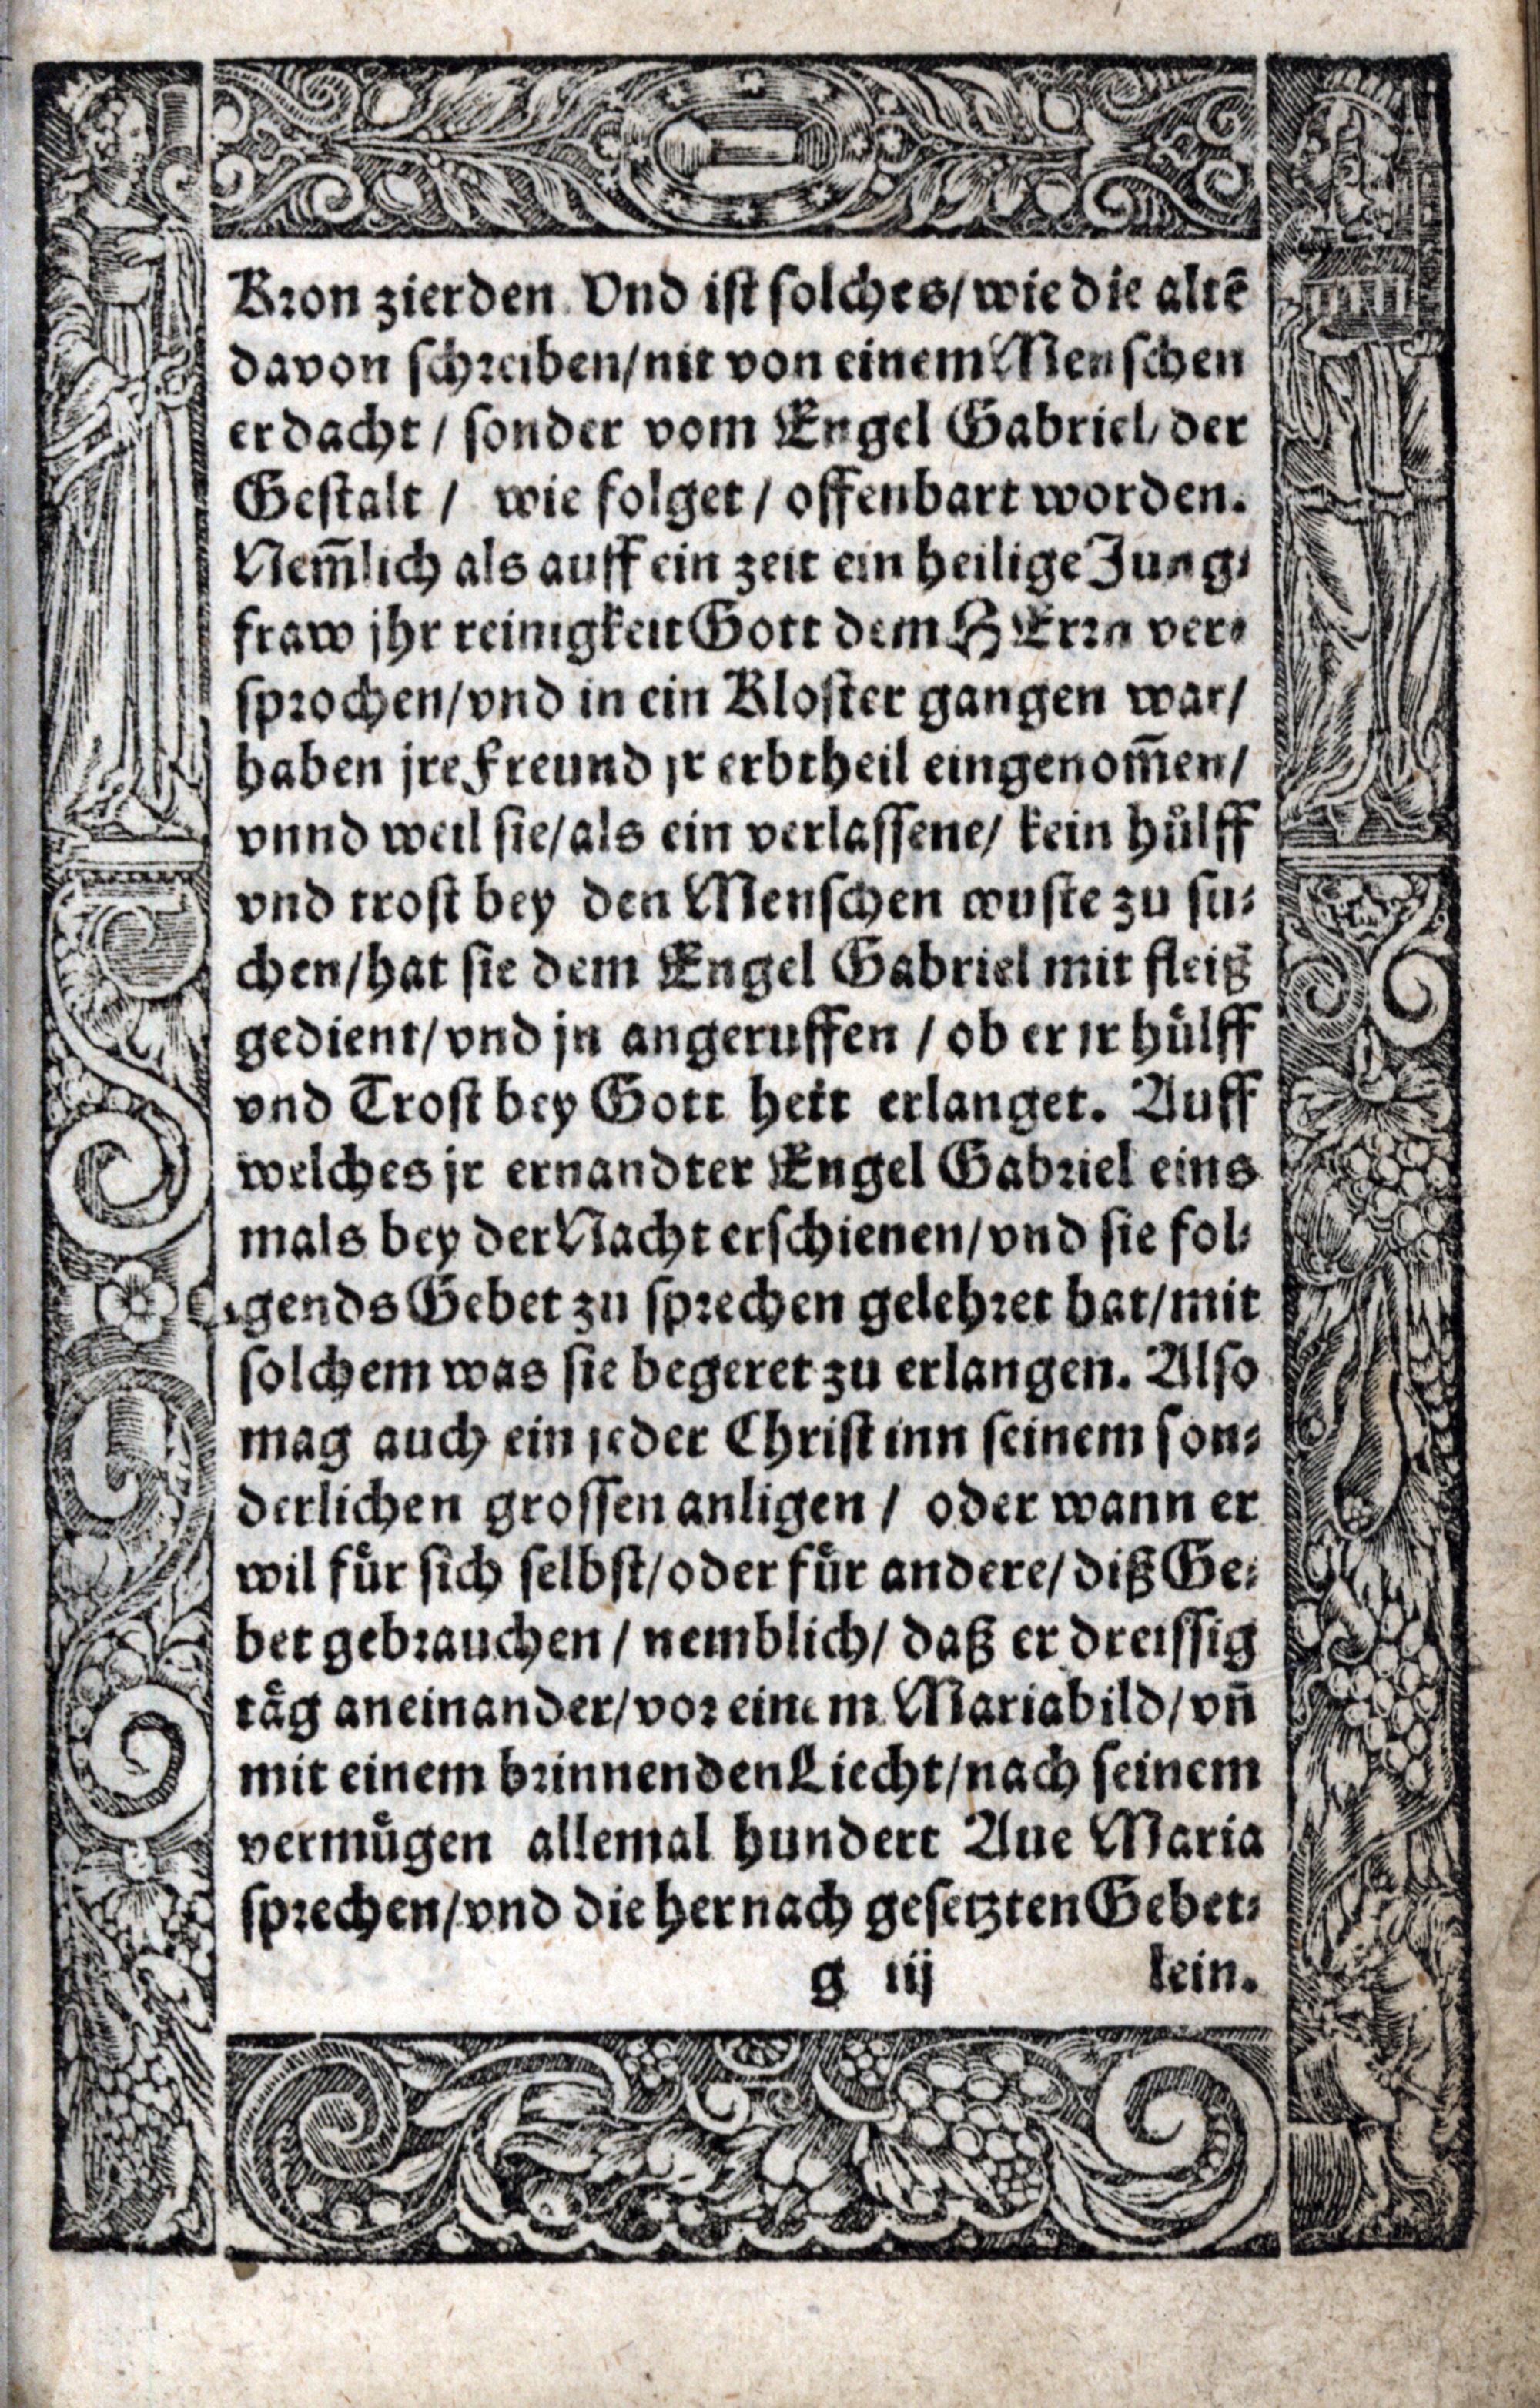 Kron zierden. Vnd ist solches/ wie die altē
davon schreiben/ nit von einem Menschen
erdacht/ sonder vom Engel Gabriel/ der
Gestalt/ wie folget/ offenbart worden.
Nem̃lich als auff ein zeit ein heilige Jung⸗
fraw jhr reinigkeit Gott dem HErrn ver⸗
sprochen/ vnd in ein Kloster gangen war/
haben jre Freund jr erbtheil eingenom̃en/
vnnd weil sie/ als ein verlassene/ kein huͤlff
vnd trost bey den Menschen wuste zu su⸗
chen/ hat sie dem Engel Gabriel mit fleiß
gedient/ vnd jn angeruffen/ ob er jr huͤlff
vnd Trost bey Gott hett erlanget. Auff
welches jr ernandter Engel Gabriel eins
mals bey der Nacht erschienen/ vnd sie fol⸗
gends Gebet zu sprechen gelehret hat/ mit
solchem was sie begeret zu erlangen. Also
mag auch ein jeder Christ inn seinem son⸗
derlichen grossen anligen/ oder wann er
wil fuͤr sich selbst/ oder fuͤr andere/ diß Ge⸗
bet gebrauchen/ nemblich/ daß er dreissig
taͤg aneinander/ vor einem Mariabild/ vñ
mit einem brinnenden Liecht/ nach seinem
vermuͤgen allemal hundert Aue Maria
sprechen/ vnd die hernach gesetzten Gebet⸗
g iij lein.